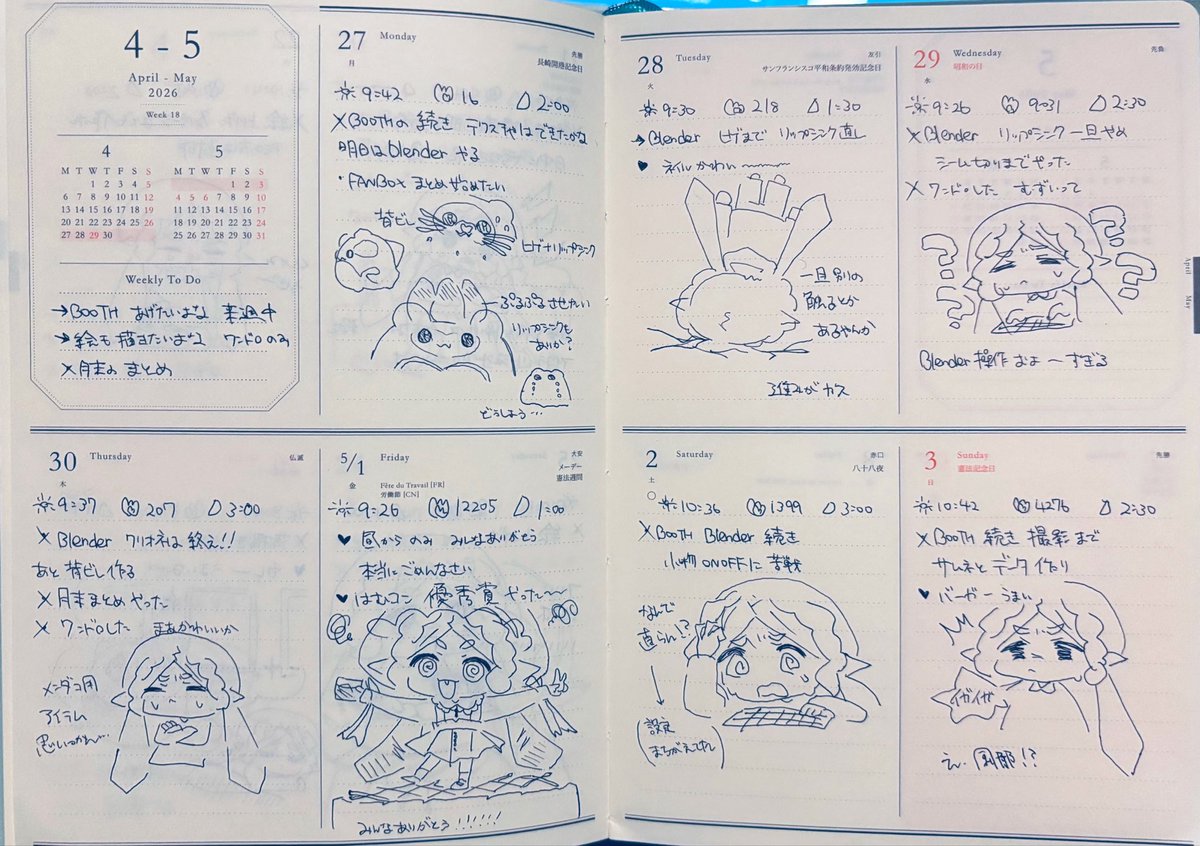 4 - 5
April - May
2026
Week 18
4
M T W T F S S
1 2 3 4 5
6 7 8 9 10 11 12
13 14 15 16 17 18 19
20 21 22 23 24 25 26
27 28 29 30
5
M T W T F S S
1 2 3
4 5 6 7 8 9 10
11 12 13 14 15 16 17
18 19 20 21 22 23 24
25 26 27 28 29 30 31
Weekly To Do
→BOOTH あげたいよな 楽過中
→絵も描きたいよな ワンドロのみ
×月末のまとめ
27 Monday
月
先勝
長崎開港記念日
9:42 16 2:00
×BOOTHの続き テクスチャはできたかな
明日はblenderやる
・FANBOXまとめ始めたい
背びし
ヒゲナリップシンク
ぷるぷるさせたい
リップシンクも
ありか?
どうしよう…
28 Tuesday
火
友引
サンフランシスコ平和条約発効記念日
9:30 218 1:30
→Blender ヒゲまで リップシンク直し
♥ ネイルかわい〜
一旦別の
触るとか
あるやんか
進みがカス
29 Wednesday
水
先負
昭和の日
9:26 9031 2:30
×Blender リップシンク一旦やめ
シーム切りまでやった
×ワンドロした むずいって
???
Blender操作 およ〜すぎる
30 Thursday
木
仏滅
9:37 207 3:00
×Blender クリオネは終え!!
あと背びし作る
×月末まとめやった
×ワンドロした まあかわいいか
メンダコ用
アイテム
思いつかん〜
5/1 Friday
金
大安
メーデー
憲法週間
Fête du Travail [FR]
労働節 [CN]
9:26 12205 1:00
♥ 昼からのみ みんなありがとう
本当にごめんなさい
♥ はむコン 優秀賞やった〜
みんなありがとう!!!!!!
2 Saturday
土
赤口
八十八夜
10:36 1399 3:00
×BOOTH Blender続き
小物ONOFFに苦戦
なんで
直らん!?
↓
(設定
まちがえてた)
3 Sunday
日
先勝
憲法記念日
10:42 4276 2:30
×BOOTH続き 撮影まで
サムネとデータ作り
♥ バーガーうまい
イガイガ
え、旦那!?
April
May